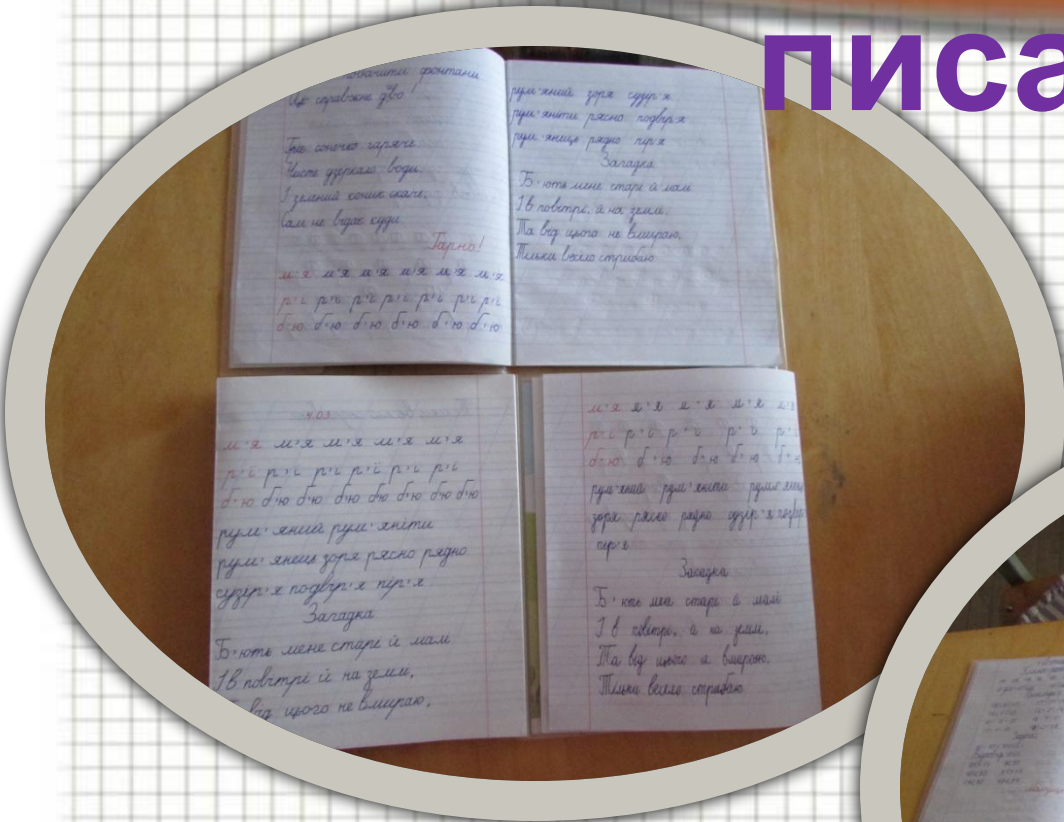 писа
побачити фонтани
Це справжнє диво!
Гріє сонечко гаряче.
Чисте дзеркало води.
І зелений коник скаче,
Сам не відає куди.
Гарно!
м'я м'я м'я м'я м'я м'я м'я
р'ї р'ї р'ї р'ї р'ї р'ї р'ї
б'ю б'ю б'ю б'ю б'ю б'ю
рум'яний зоря сузір'я
рум'яніти рясно подвір'я
рум'янець рядно пір'я
Загадка
Б'ють мене старі й малі
І в повітрі, й на землі.
Та від цього не вмираю,
Тільки весело стрибаю
м'я м'я м'я м'я м'я
р'ї р'ї р'ї р'ї р'ї р'ї
б'ю б'ю б'ю б'ю б'ю б'ю б'ю б'ю
рум'яний рум'яніти
рум'янець зоря рясно рядно
сузір'я подвір'я пір'я
Загадка
Б'ють мене старі й малі
І в повітрі й на землі.
від цього не вмираю,
м'я м'я м'я м'я м'я
р'ї р'ї р'ї р'ї р'ї
б'ю б'ю б'ю б'ю б'ю
рум'яний рум'яніти
зоря рясно рядно сузір'я
Загадка
Б'ють мене старі й малі
І в повітрі, й на землі.
Та від цього не вмираю.
Тільки весело стрибаю